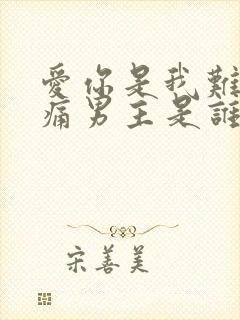 愛你是我難
痛男主是誰
宋善美